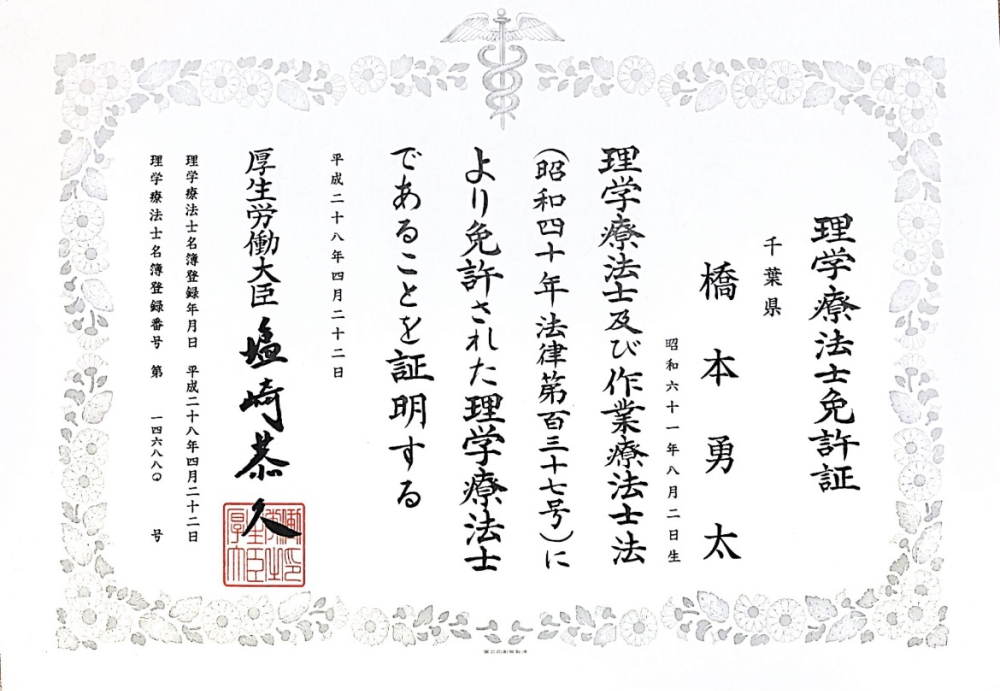 理学療法士免許証
千葉県
橋本勇太
昭和六十一年八月二日生
理学療法士及び作業療法士法
(昭和四十年法律第百三十七号)に
より免許された理学療法士
であることを証明する
平成二十八年四月二十二日
厚生労働大臣 塩崎恭久
理学療法士名簿登録年月日 平成二十八年四月二十二日
理学療法士名簿登録番号 第 一四六八八〇 号